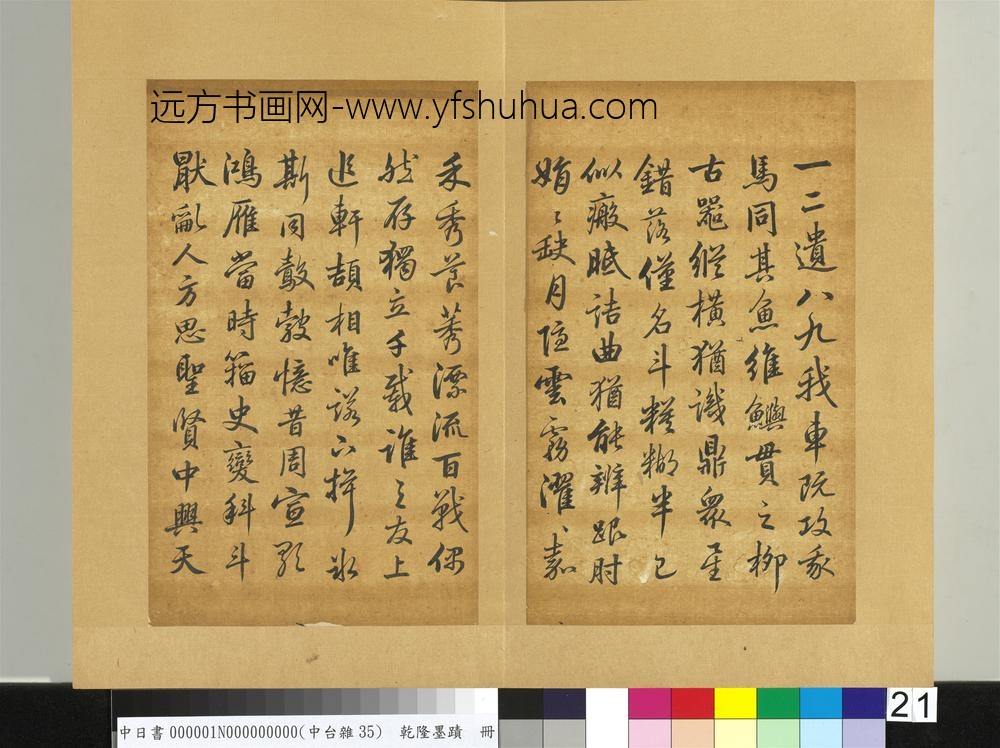 远方书画网-www.yfshuhua.com
一二遺八九我車既攻我
馬同其魚維鱮貫之柳
古器縱橫猶識鼎眾星
錯落僅名斗糢糊半已
似瘢胝詰曲猶能辨跟肘
娟〻缺月隱雲霧濯〻嘉
禾秀莨莠漂流百戰偶
然存獨立千載誰与友上
追軒頡相唯諾下揖冰
斯同鷇㝅憶昔周宣歌
鴻雁當時籀史變科斗
厭亂人方思聖賢中興天
21
中日書000001N000000000(中台雜35) 乾隆墨蹟 冊